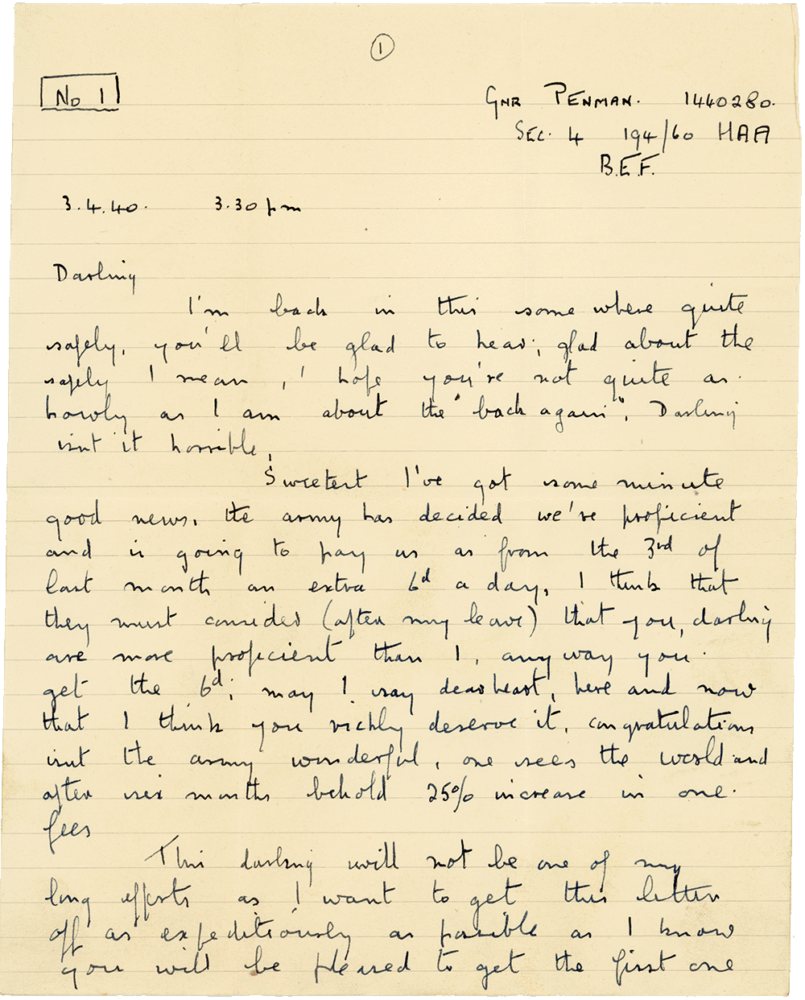 1
No 1
GNR PENMAN. 1440280.
SEC. 4 194/60 HAA
B.E.F.
3.4.40. 3.30 pm
Darling
I'm back in this some where quite
safely, you'll be glad to hear; glad about the
safely I mean, I hope you're not quite as
howly as I am about the "back again". Darling
isnt it horrible,
Sweetest I've got some minute
good news, the army has decided we're proficient
and is going to pay us as from the 3rd of
last month an extra 6d a day, I think that
they must consider (after my leave) that you, darling
are more proficient than I, anyway you
get the 6d; may I say dearheart, here and now
that I think you richly deserve it, congratulations
isnt the army wonderful, one sees the world and
after six months behold 25% increase in one.
fees
This darling will not be one of my
long efforts as I want to get this letter
off as expeditiously as possible as I know
you will be pleased to get the first one